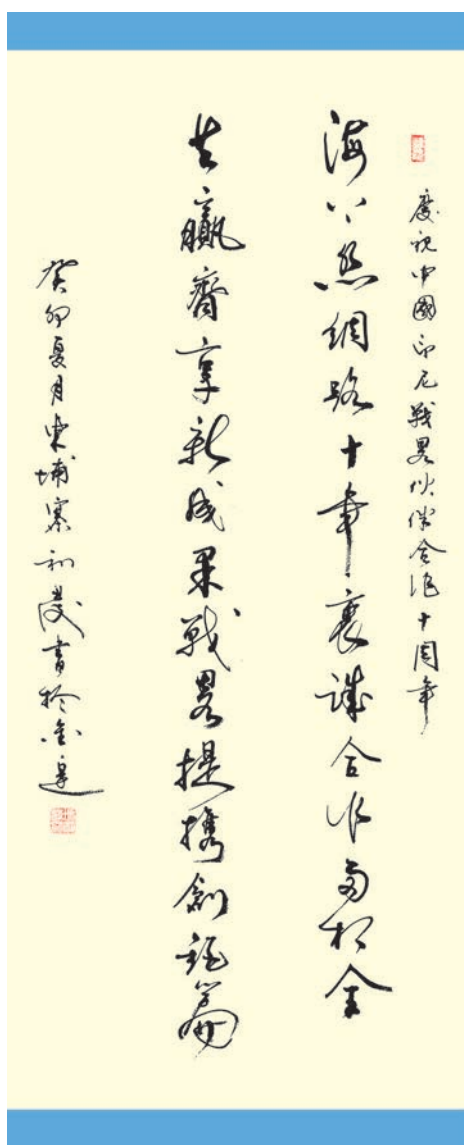 慶祝中國印尼戰畧伙伴合作十周年
海上丝綢路十年衷誠合作两相全
共贏齊享新成果戰畧提攜創篇
癸卯夏月柬埔寨書於金邊